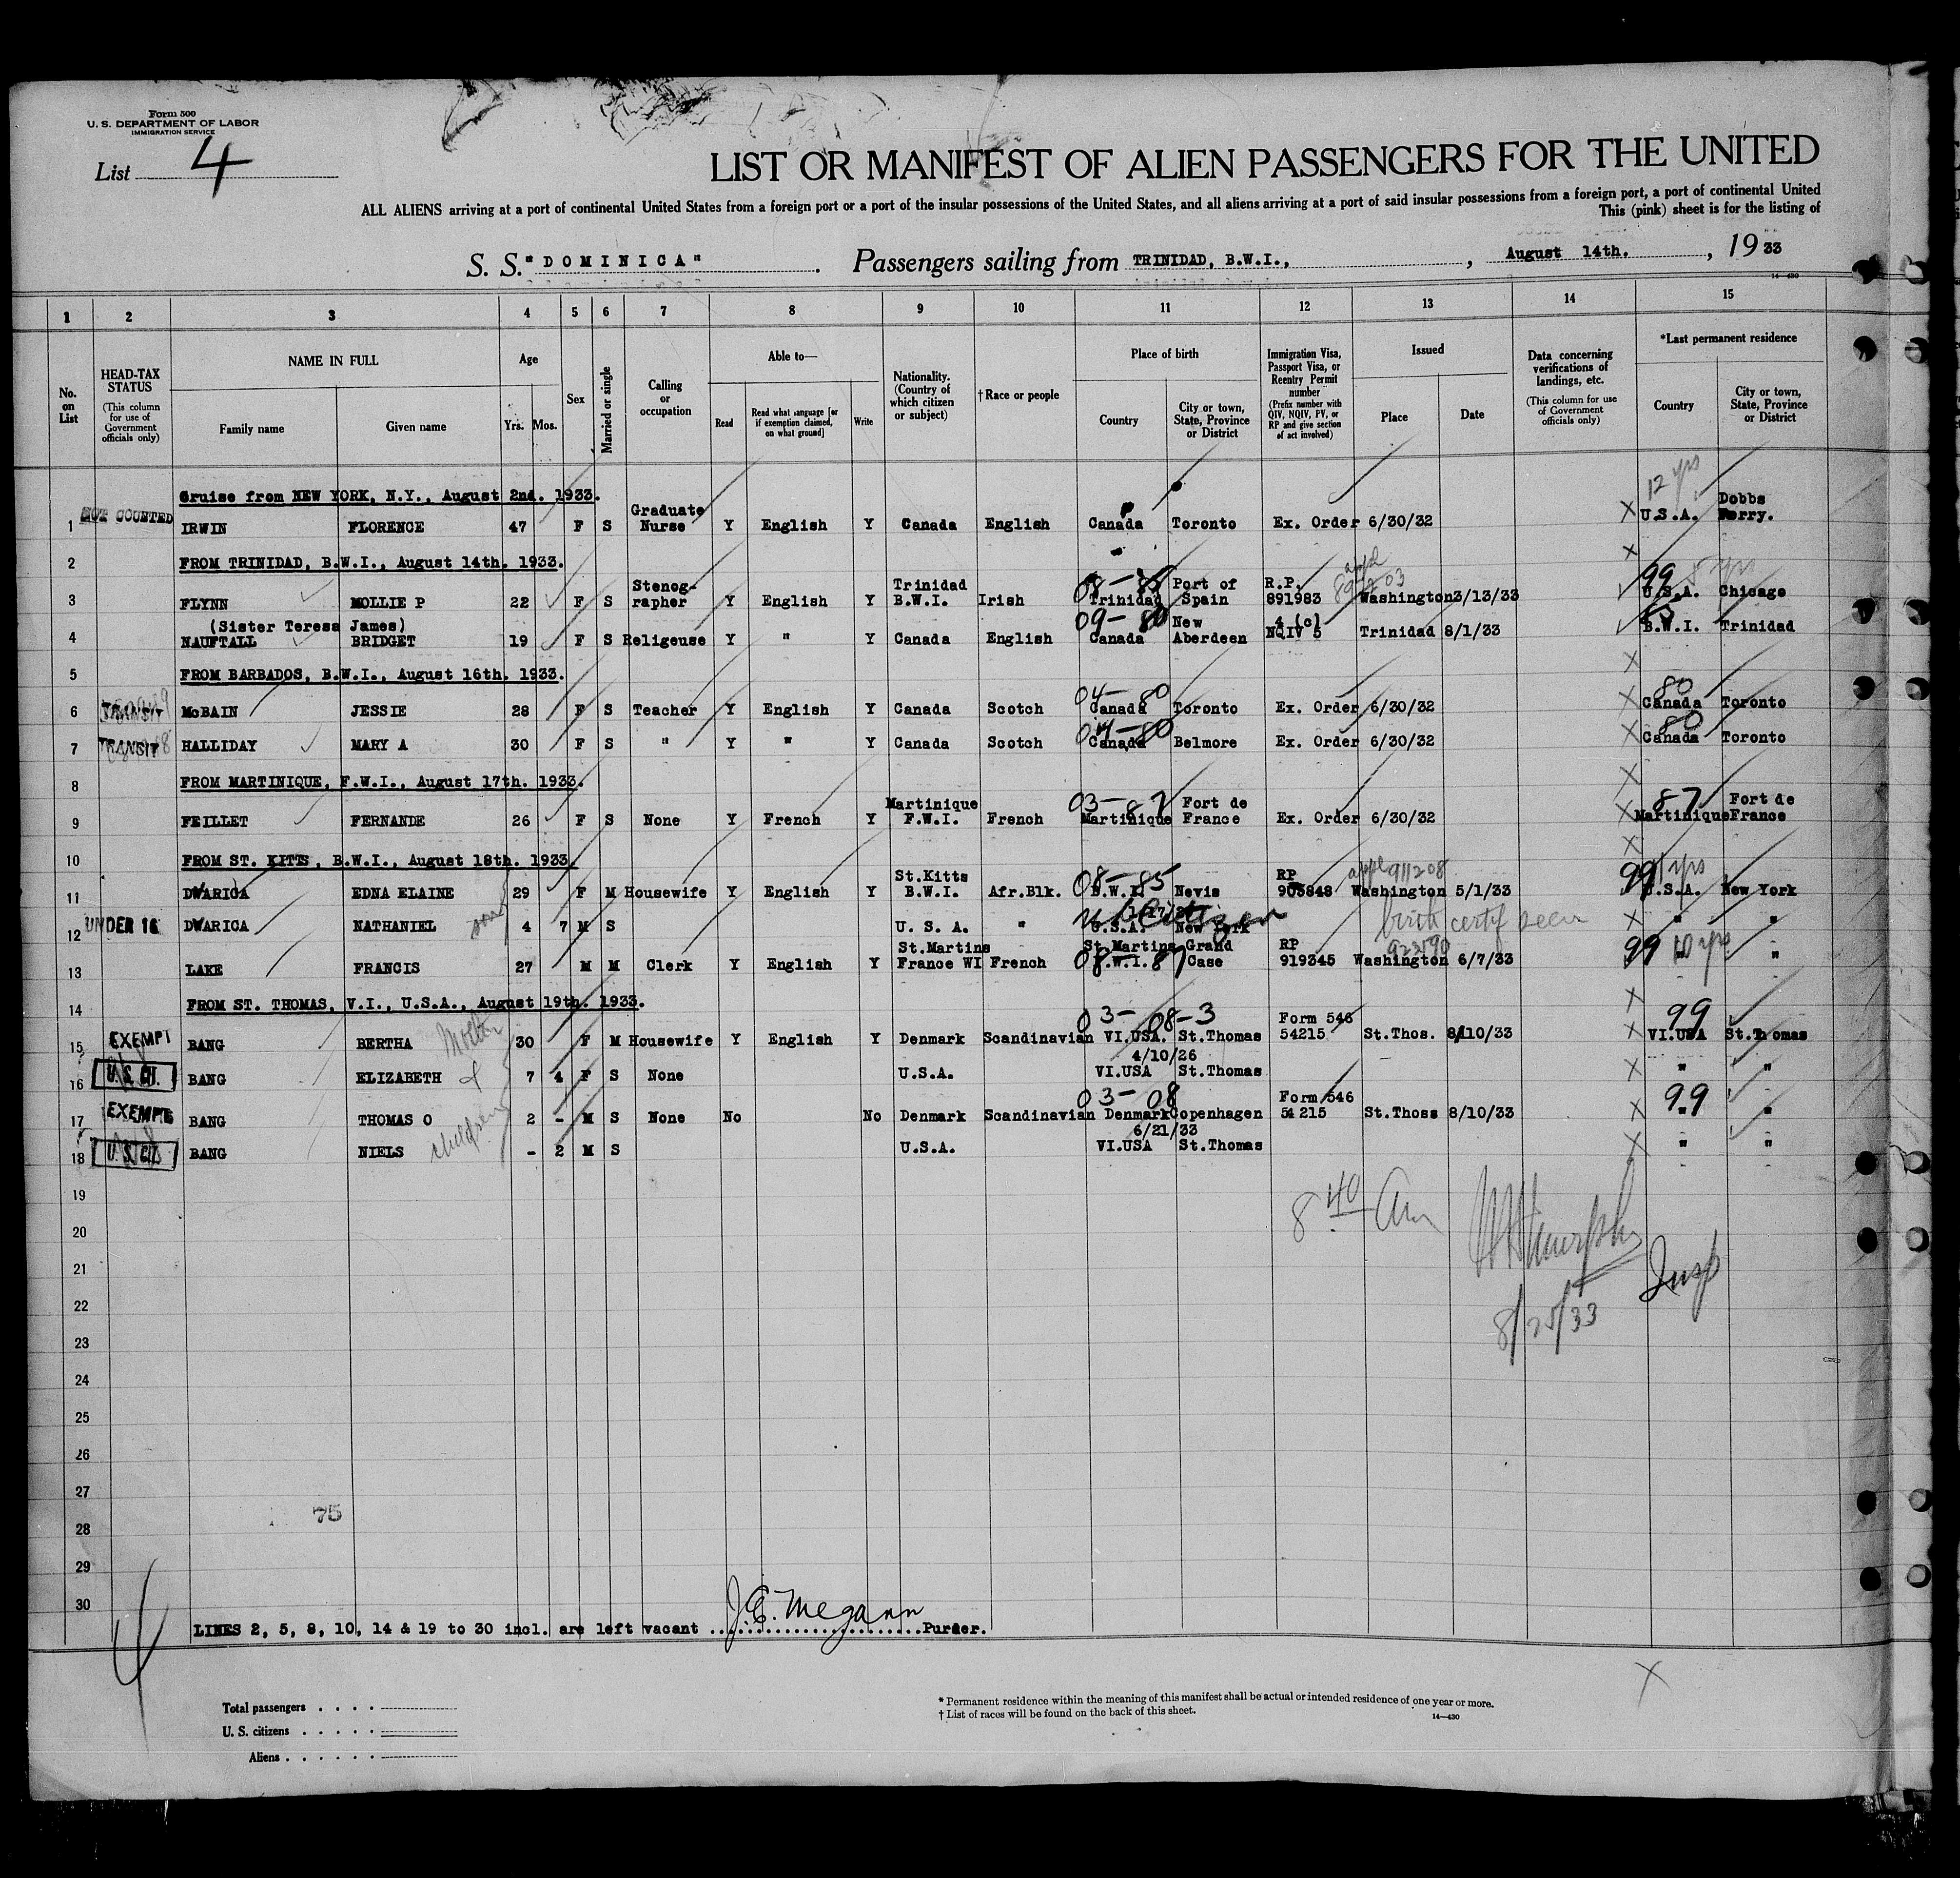 Form 500
U. S. DEPARTMENT OF LABOR
IMMIGRATION SERVICE
List 4
LIST OR MANIFEST OF ALIEN PASSENGERS FOR THE UNITED
ALL ALIENS arriving at a port of continental United States from a foreign port or a port of the insular possessions of the United States, and all aliens arriving at a port of said insular possessions from a foreign port, a port of continental United
This (pink) sheet is for the listing of
S. S. "DOMINICA". Passengers sailing from TRINIDAD, B.W.I., , August 14th. , 19 33
14—430
1 2 3 4 5 6 7 8 9 10 11 12 13 14 15
No. on List
HEAD-TAX STATUS (This column for use of Government officials only)
NAME IN FULL
Family name Given name
Age
Yrs. Mos.
Sex
Married or single
Calling or occupation
Able to—
Read Read what language [or if exemption claimed, on what ground] Write
Nationality. (Country of which citizen or subject)
†Race or people
Place of birth
Country City or town, State, Province or District
Immigration Visa, Passport Visa, or Reentry Permit number (Prefix number with QIV, NQIV, PV, or RP and give section of act involved)
Issued
Place Date
Data concerning verifications of landings, etc. (This column for use of Government officials only)
*Last permanent residence
Country City or town, State, Province or District
Cruise from NEW YORK, N.Y., August 2nd. 1933.
12 yrs
1 NOT COUNTED IRWIN FLORENCE 47 F S Graduate Nurse Y English Y Canada English Canada Toronto Ex. Order 6/30/32 X U.S.A. Dobbs Ferry.
2 FROM TRINIDAD, B.W.I., August 14th. 1933. X
3 FLYNN MOLLIE P 22 F S Stenog-rapher Y English Y Trinidad B.W.I. Irish 08—85 Trinidad Port of Spain R.P. 891983 Washington 3/13/33 99 8 yrs U.S.A. Chicago
(Sister Teresa James)
4 NAUFTALL BRIDGET 19 F S Religeuse Y " Y Canada English 09—80 Canada New Aberdeen 4 (c) NQIV 5 Trinidad 8/1/33 B.W.I. Trinidad
5 FROM BARBADOS, B.W.I., August 16th. 1933. X
6 TRANSIT McBAIN JESSIE 28 F S Teacher Y English Y Canada Scotch 04—80 Canada Toronto Ex. Order 6/30/32 X 80 Canada Toronto
7 TRANSIT HALLIDAY MARY A 30 F S " Y " Y Canada Scotch 04—80 Canada Belmore Ex. Order 6/30/32 X 80 Canada Toronto
8 FROM MARTINIQUE, F.W.I., August 17th. 1933. X
9 FEILLET FERNANDE 26 F S None Y French Y Martinique F.W.I. French 03—87 Martinique Fort de France Ex. Order 6/30/32 X 87 Martinique Fort de France
10 FROM ST. KITTS, B.W.I., August 18th. 1933. X
11 DWARICA EDNA ELAINE 29 F M Housewife Y English Y St.Kitts B.W.I. Afr.Blk. 08—85 B.W.I. Nevis RP 903848 appl 911208 Washington 5/1/33 99 yrs U.S.A. New York
12 UNDER 16 DWARICA NATHANIEL son 4 7 M S U. S. A. " U.S.A. New York US Citizen birth certif seen X " "
13 LAKE FRANCIS 27 M M Clerk Y English Y St.Martins France WI French St.Martins F.W.I. 08—87 Grand Case RP 919345 923590 Washington 6/7/33 99 10 yrs " "
14 FROM ST. THOMAS, V.I., U.S.A., August 19th. 1933. X
15 EXEMPT BANG BERTHA Mother 30 F M Housewife Y English Y Denmark Scandinavian 03—08—3 VI.USA. St.Thomas Form 546 54215 St.Thos. 8/10/33 X 99 VI.USA St.Thomas
16 U.S. CIT. BANG ELIZABETH & 7 4 F S None U.S.A. 4/10/26 VI.USA St.Thomas X " "
17 EXEMPT BANG THOMAS O children 2 - M S None No No Denmark Scandinavian 03—08 Denmark Copenhagen Form 546 54215 St.Thoss 8/10/33 X 99 " "
18 U.S. CIT. BANG NIELS - 2 M S U.S.A. 6/21/33 VI.USA St.Thomas X " "
19
20 8 40 am
21 Insp
22
23 8/25/33
24
25
26
27
75
28
29
30
J. E. Megann
LINES 2, 5, 8, 10, 14 & 19 to 30 incl. are left vacant ......................Purser.
4
X
Total passengers . . . .
U. S. citizens . . . . .
Aliens . . . . . .
* Permanent residence within the meaning of this manifest shall be actual or intended residence of one year or more.
† List of races will be found on the back of this sheet.
14—430